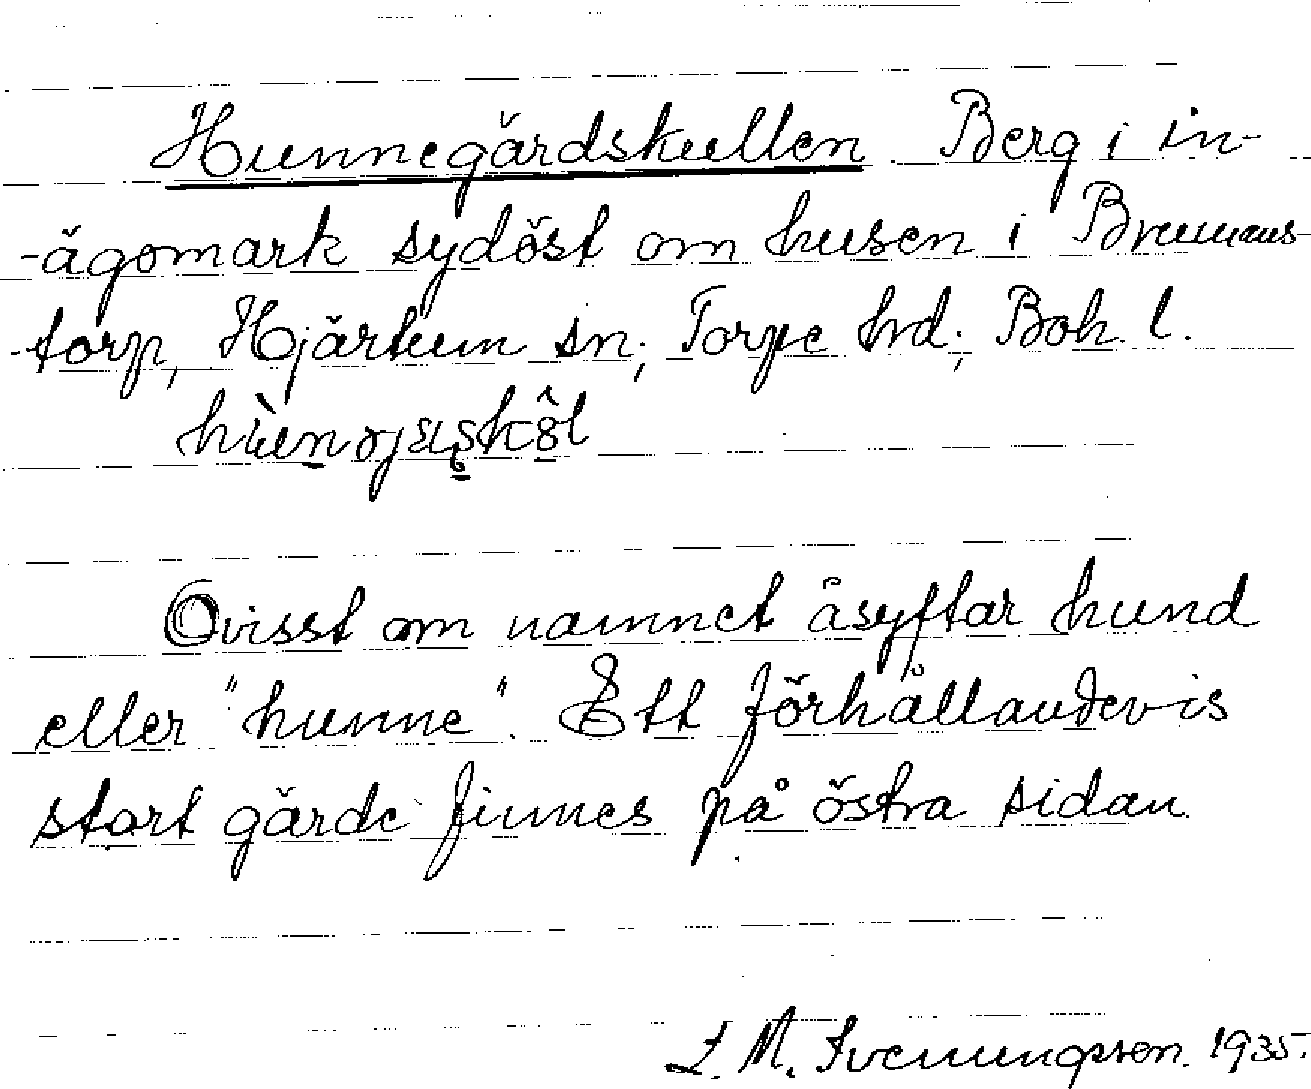 Hunnegärdskullen Berg i in-
-ägomark sydöst om husen i Brunus-
-torp, Hjärtum sn; Torpe hd; Boh. l.
Ovisst om namnet åsyftar hund
eller "hunne". Ett förhållandevis
stort gärde finnes på östra sidan.
L. M. Svenungsson. 1935.